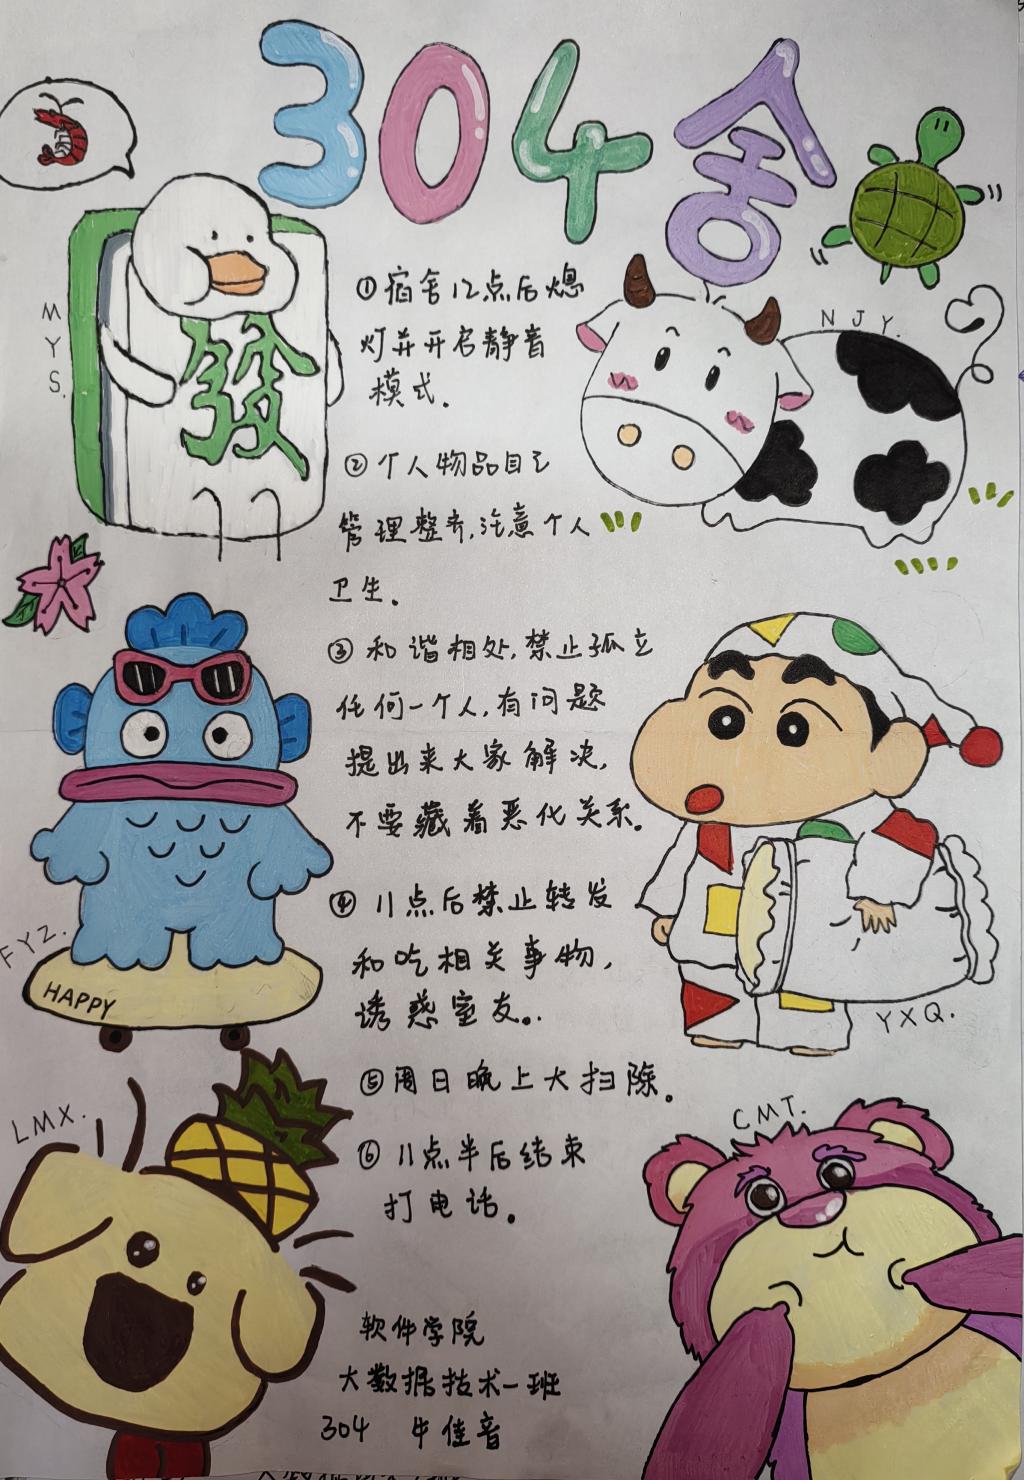 304舍
發
MYS.
NJY.
①宿舍12点后熄
灯并开启静音
模式.
②个人物品自己
管理整齐,注意个人
卫生.
③和谐相处,禁止孤立
任何一个人,有问题
提出来大家解决,
不要藏着恶化关系.
④11点后禁止转发
和吃相关事物,
诱惑室友。
FYZ.
HAPPY
YXQ.
⑤周日晚上大扫除.
LMX.
CMT.
⑥11点半后结束
打电话。
软件学院
大数据技术一班
304 牛佳音